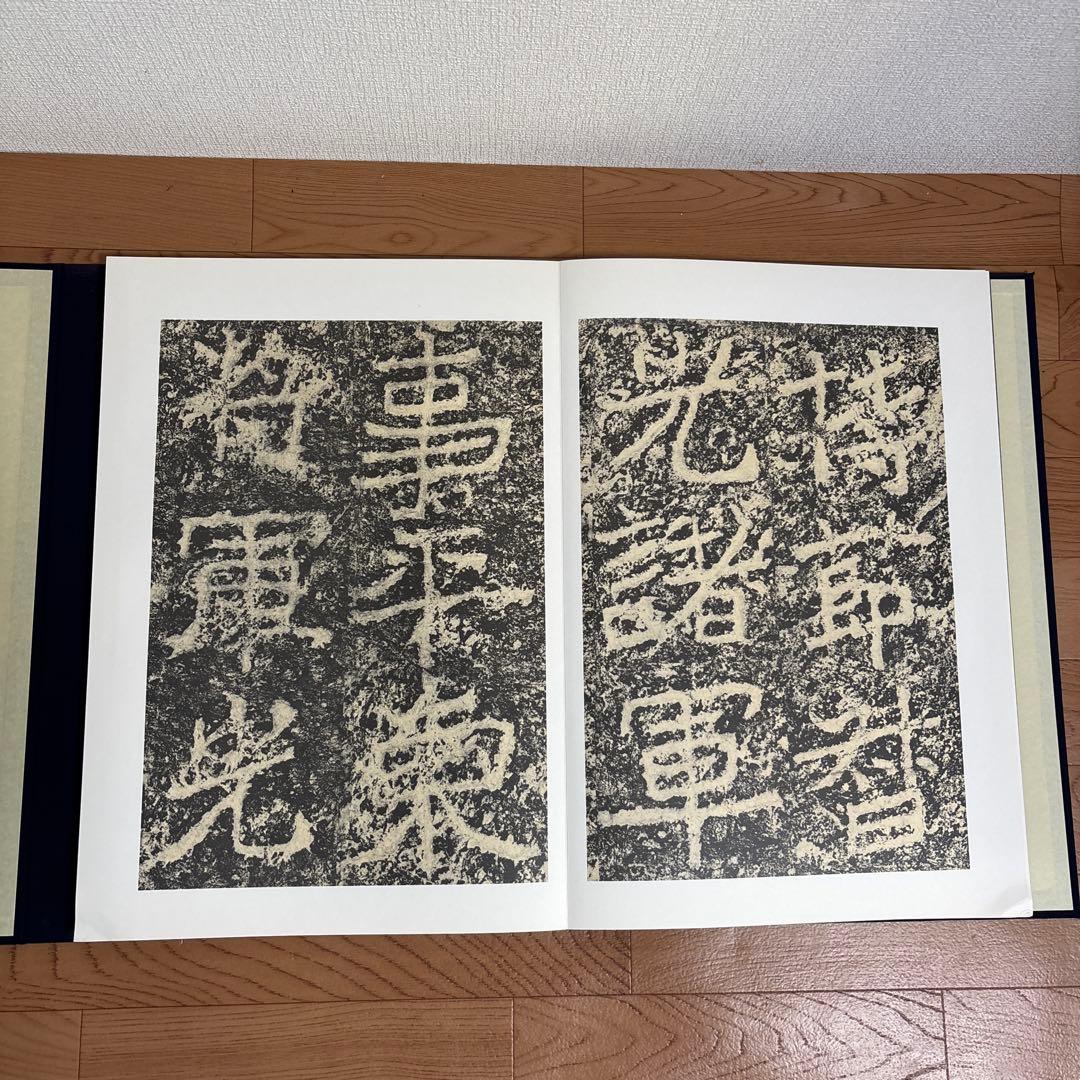 持節督
光諸軍
事平東
將軍光